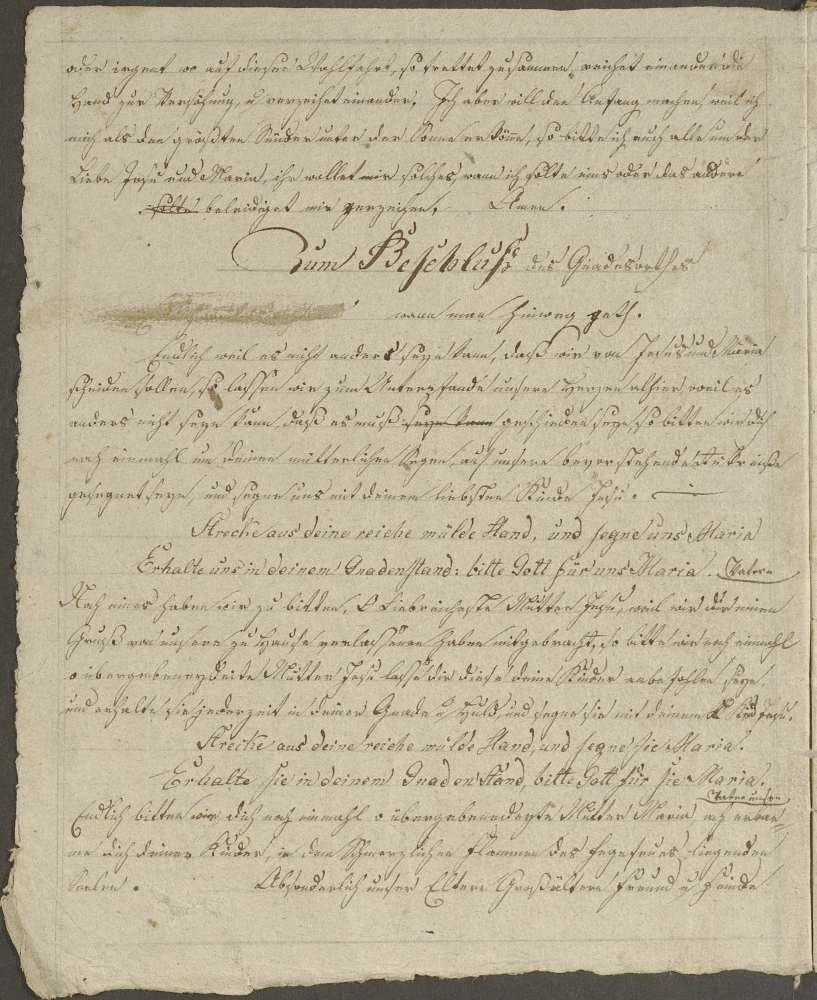 oder irgent wo auf dieser Wahlfahrt, so trettet zusammen, reichet einander die
Hand zur Versöhnung, u verzeihet einander. Ich aber will den Anfang machen, weil ich
mich als den größten Sünder unter der Sonne erkönne, so bitte ich euch alle um der
Liebe Jesu und Maria, ihr wollet mir solches, wann ich solte eins oder das andere
solte beleidiget mir verzeihen. Amen.
Zum Beschluß des Gnadenorthes
wann man hinweg geth.
Endlich weil es nicht anders seye kann, daß wir von Jesus und Maria
scheiden sollen, so lassen wir zum Unterpfande unsere Herzen alhier weil es
anders nicht seyn kann, daß es muß seyn kann geschieden seye, so bitten wir dich
noch einmahl um deinen mütterlichen Segen, auf unsere bevorstehende
gesegnet seye, und segne uns mit deinem liebsten Kinde Jesu.
Strecke aus deine reiche mülde Hand, und segne uns Maria
Erhalte uns in deinem Gnadenstand: bitte Gott für uns Maria. Vater
Noch eines haben wir zu bitten, O Liebreicheste Mutter Jesu, weil wir dir einen
Gruß von unsern zu Hause verlassenen haben mitgebracht, so bitte wir noch einmahl
o übergebenedeite Mutter Jesu lasse dir diese deine Kinder anbefohlen seye
und erhalte sie jederzeit in deiner Gnade u Huld, und segne sie mit deinem Kind Jesu.
Strecke aus deine reiche mülde Hand, und segne sie Maria.
Erhalte sie in deinem Gnaden Stand, bitte Gott für sie Maria.
Vater unser
Endlich bitten wir dich noch einmahl o übergebenedeyte Mutter Maria, ach erbar=
me dich deiner Kinder, in dem Schmerzlichen Flammen des Fegefeuers liegenden
Seelen. Absonderlich unser Eltern Großältern Freund u Feinde